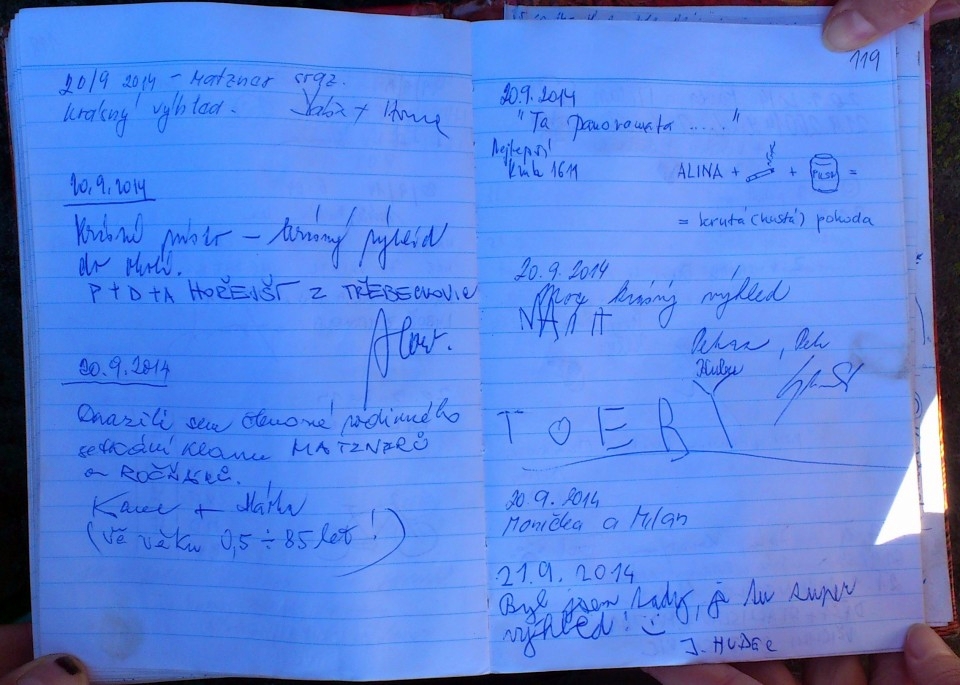 20/9 2014 – Matzner orgz.
Krásný výhled.
20.9.2014
Krásné místo – krásný výhled
do okolí.
P+D+A HOŘENŠT Z TŘEBECHOVIC
20.9.2014
Dorazili sme členové rodinného
setkání klanu MATZNERŮ
a ROČŇÁKŮ.
(ve věku 0,5 ÷ 85 let!)
119
20.9.2014
"Ta panoramata ....."
Nejlepší
Klub 1611
ALINA + + PILSN =
= krutá (hustá) pohoda
20.9.2014
krásný výhled
TOERY
20.9.2014
Monička a Milan
21.9.2014
Byl jsem tady, je tu super
výhled!
J. HUDEC